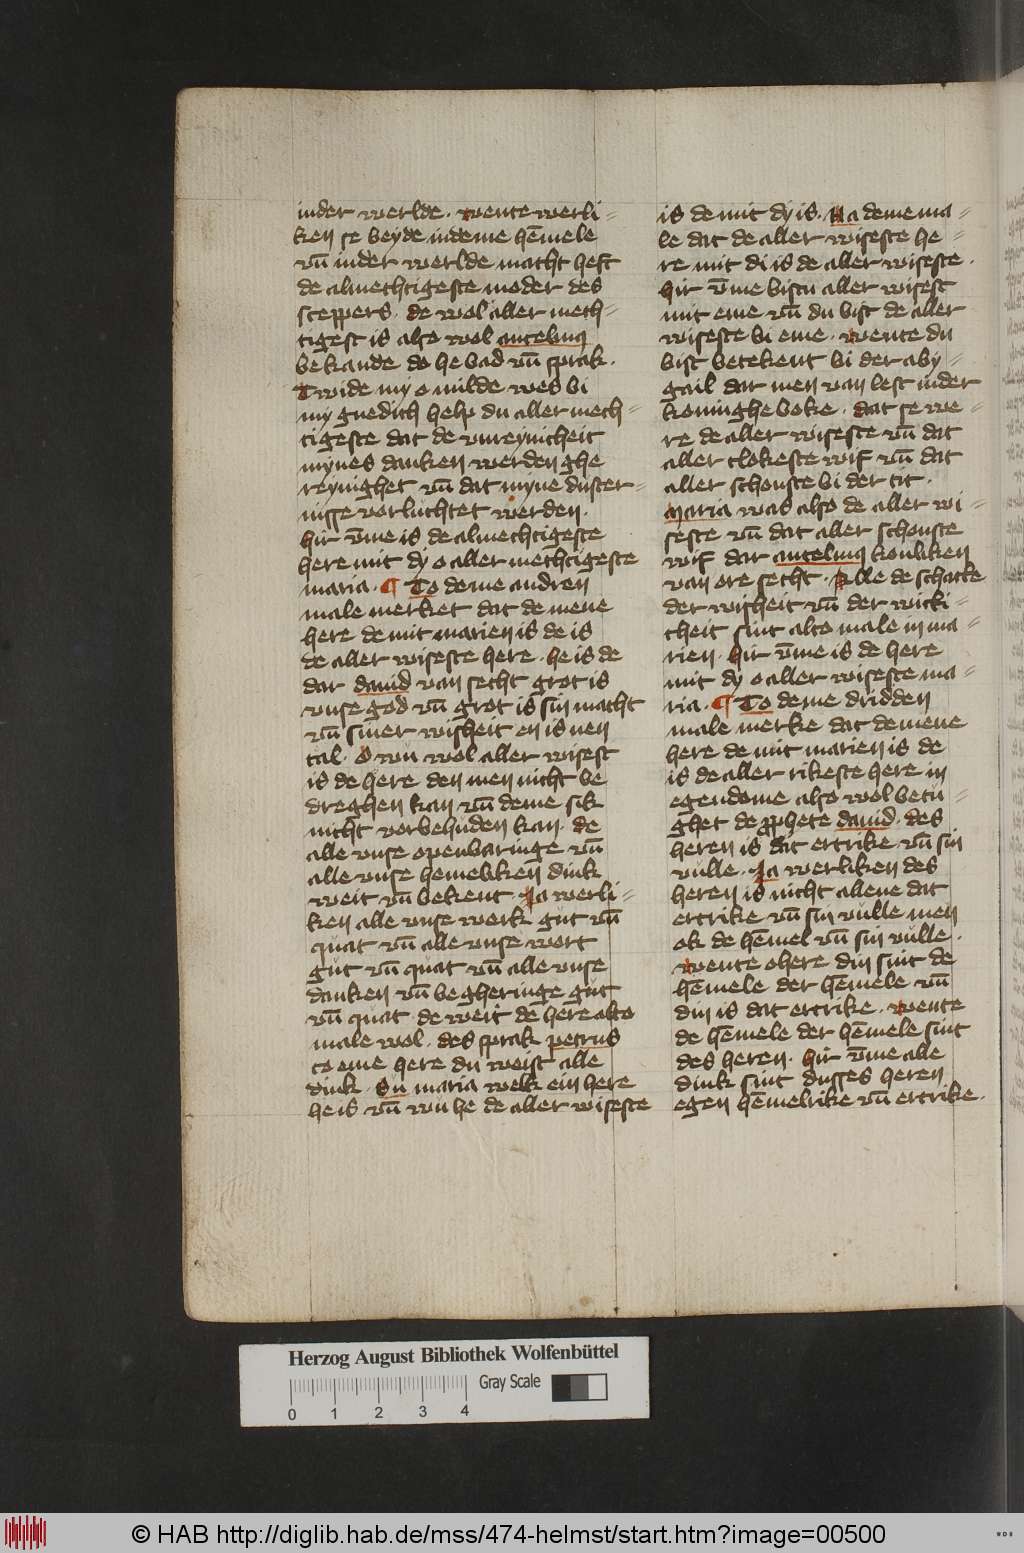 inder werlde. wente werli=
ken se beyde indeme hēmele
vn̄ inder werlde macht heft
de almechtigeste moder des
sceppers. de wol aller mech=
tigest is also wol ancelmꝯ
bekande do he bad vn̄ sprak.
Twide my o milde wes bi
my gnedich help du aller mech=
tigeste dat de vnreynicheit
mynes danken werden ghe
reynighet vn̄ dat myne duster=
nisse vorluchtet werden.
hir v̄me is de almechtigeste
here mit dy o aller mechtigeste
maria. ¶ To deme andren
male merket dat de mene
here de mit marien is de is
de aller wiseste here. he is de
dar dauid van secht grot is
vnse god vn̄ grot is sin macht
vn̄ siner wisheit en is nen
tal. O wu wol aller wisest
is de here den men nicht be
dreghen kan vn̄ deme sik
nicht vorbehuden kan. de
alle vnse openbaringe vn̄
alle vnse hemeliken dink
weit vn̄ bekent. Ja werli=
ken alle vnse werk gut vn̄
quat vn̄ alle vnse wort
gut vn̄ quat vn̄ alle vnse
danken vn̄ begheringe gut
vn̄ quat de weit de here alto
male wol. des sprak petrus
to eme here du weist alle
dink. Su maria welk ein here
he is vn̄ wu he de aller wiseste
is de mit dy is. Na deme ma=
le dat de aller wiseste he=
re mit di is de aller wiseste.
hir v̄me bistu aller wisest
mit eme vn̄ du bist de aller
wiseste bi eme. wente du
bist betekent bi der aby=
gail dar men van lest inder
koninghe boke. dat se we=
re de aller wiseste vn̄ dat
aller clokeste wif vn̄ dat
aller schonste bi der tit.
Maria was also de aller wi=
seste vn̄ dat aller schonste
wif dar ancelmꝯ konliken
van ore secht. Alle de schatte
der wisheit vn̄ der witti=
cheit sint alto male in ma=
rien. hir v̄me is de here
mit dy o aller wiseste ma=
ria. ¶ To deme dridden
male merke dat de mene
here de mit marien is de
is de aller rikeste here in
egendome also wol betu=
ghet de ꝓphete dauid. des
heren is dat ertrike vn̄ sin
vulle. Ja werliken des
heren is nicht allene dat
ertrike vn̄ sin vulle men
ok de hēmel vn̄ sin vulle.
wente o here din sint de
hēmele der hēmele vn̄
din is dat ertrike. wente
de hēmele der hēmele sint
des heren. hir v̄me alle
dink sint dusses heren
egen hēmelrike vn̄ ertrike.
Herzog August Bibliothek Wolfenbüttel
Gray Scale
0 1 2 3 4
© HAB http://diglib.hab.de/mss/474-helmst/start.htm?image=00500